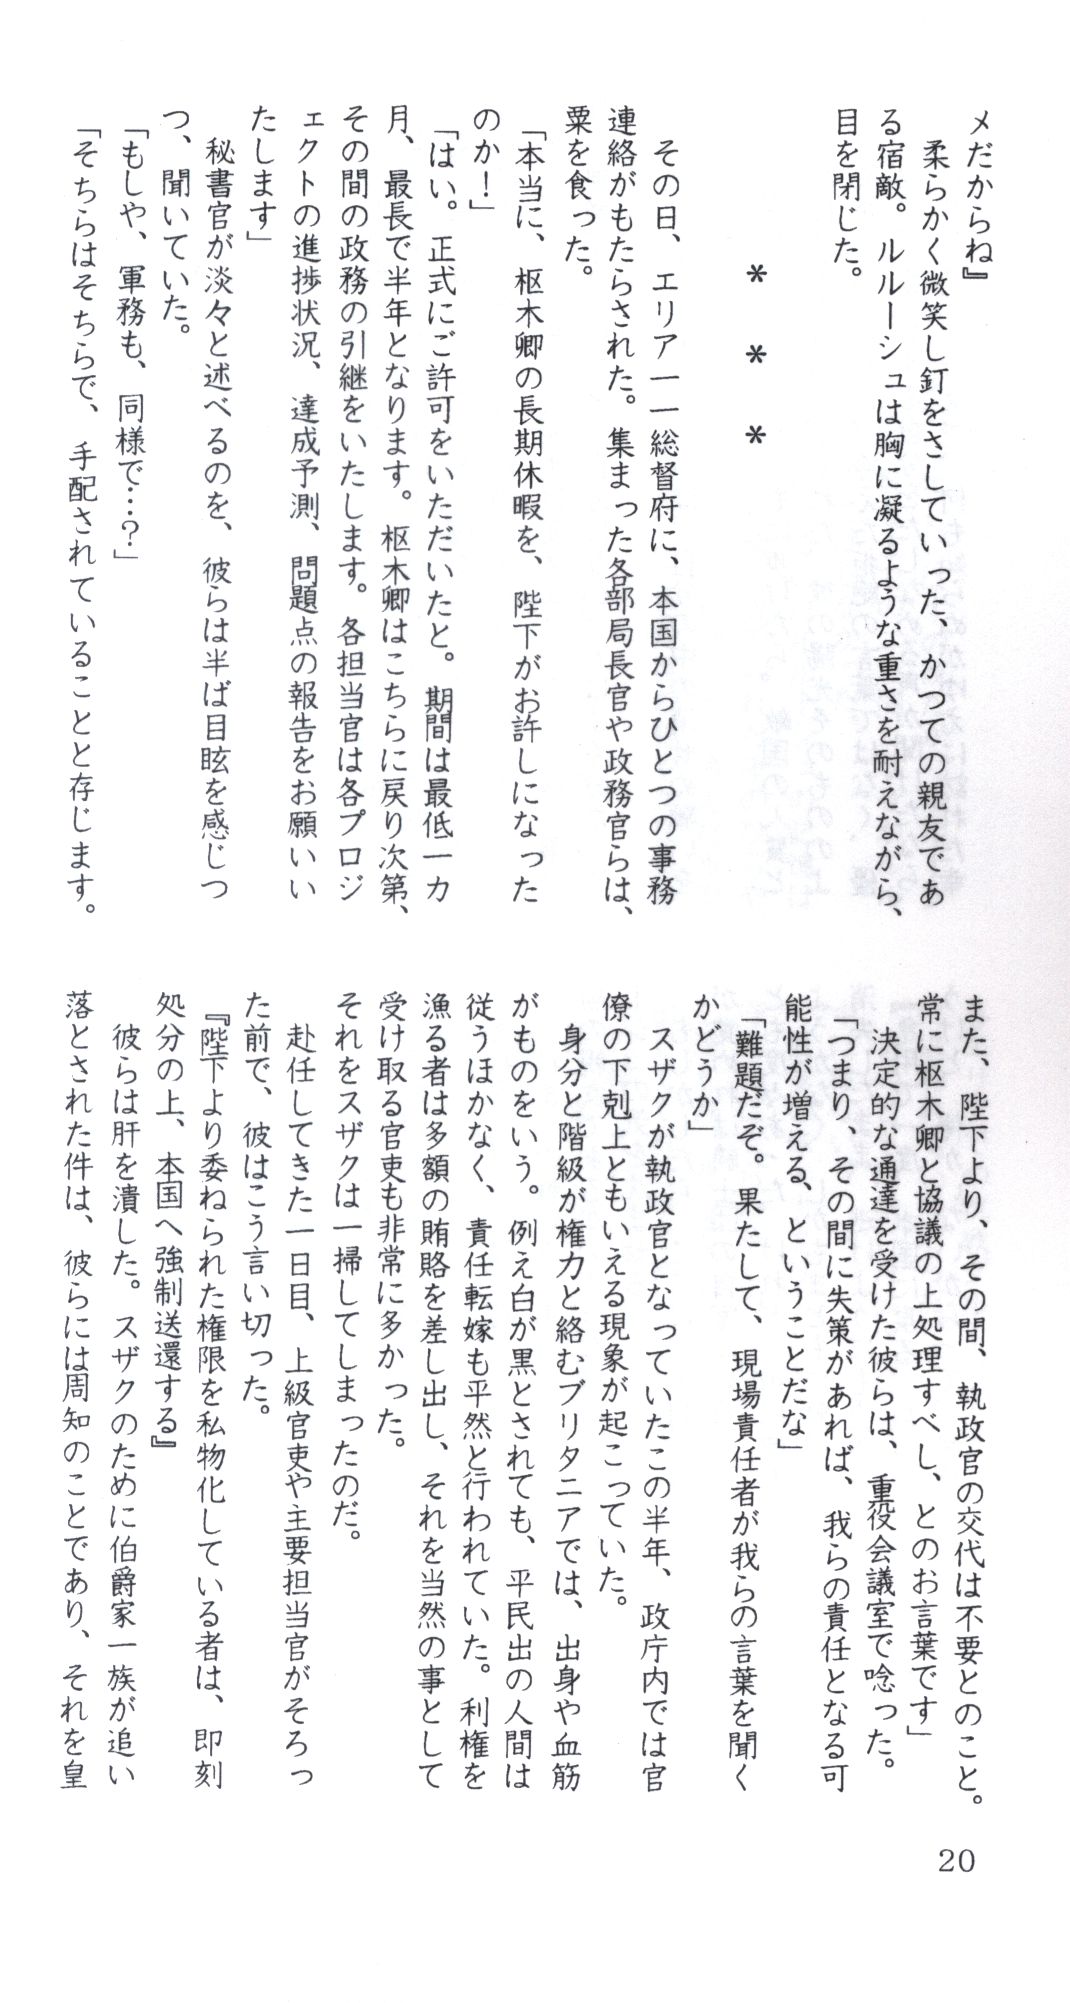 メだからね』
　柔らかく微笑し釘をさしていった、かつての親友であ
る宿敵。ルルーシュは胸に凝るような重さを耐えながら、
目を閉じた。
＊　＊　＊
　その日、エリア一一総督府に、本国からひとつの事務
連絡がもたらされた。集まった各部局長官や政務官らは、
粟を食った。
「本当に、枢木卿の長期休暇を、陛下がお許しになった
のか！」
「はい。正式にご許可をいただいたと。期間は最低一カ
月、最長で半年となります。枢木卿はこちらに戻り次第、
その間の政務の引継をいたします。各担当官は各プロジ
ェクトの進捗状況、達成予測、問題点の報告をお願いい
たします」
　秘書官が淡々と述べるのを、彼らは半ば目眩を感じつ
つ、聞いていた。
「もしや、軍務も、同様で…？」
「そちらはそちらで、手配されていることと存じます。
また、陛下より、その間、執政官の交代は不要とのこと。
常に枢木卿と協議の上処理すべし、とのお言葉です」
　決定的な通達を受けた彼らは、重役会議室で唸った。
「つまり、その間に失策があれば、我らの責任となる可
能性が増える、ということだな」
「難題だぞ。果たして、現場責任者が我らの言葉を聞く
かどうか」
　スザクが執政官となっていたこの半年、政庁内では官
僚の下剋上ともいえる現象が起こっていた。
　身分と階級が権力と絡むブリタニアでは、出身や血筋
がものをいう。例え白が黒とされても、平民出の人間は
従うほかなく、責任転嫁も平然と行われていた。利権を
漁る者は多額の賄賂を差し出し、それを当然の事として
受け取る官吏も非常に多かった。
それをスザクは一掃してしまったのだ。
　赴任してきた一日目、上級官吏や主要担当官がそろっ
た前で、彼はこう言い切った。
『陛下より委ねられた権限を私物化している者は、即刻
処分の上、本国へ強制送還する』
　彼らは肝を潰した。スザクのために伯爵家一族が追い
落とされた件は、彼らには周知のことであり、それを皇
20